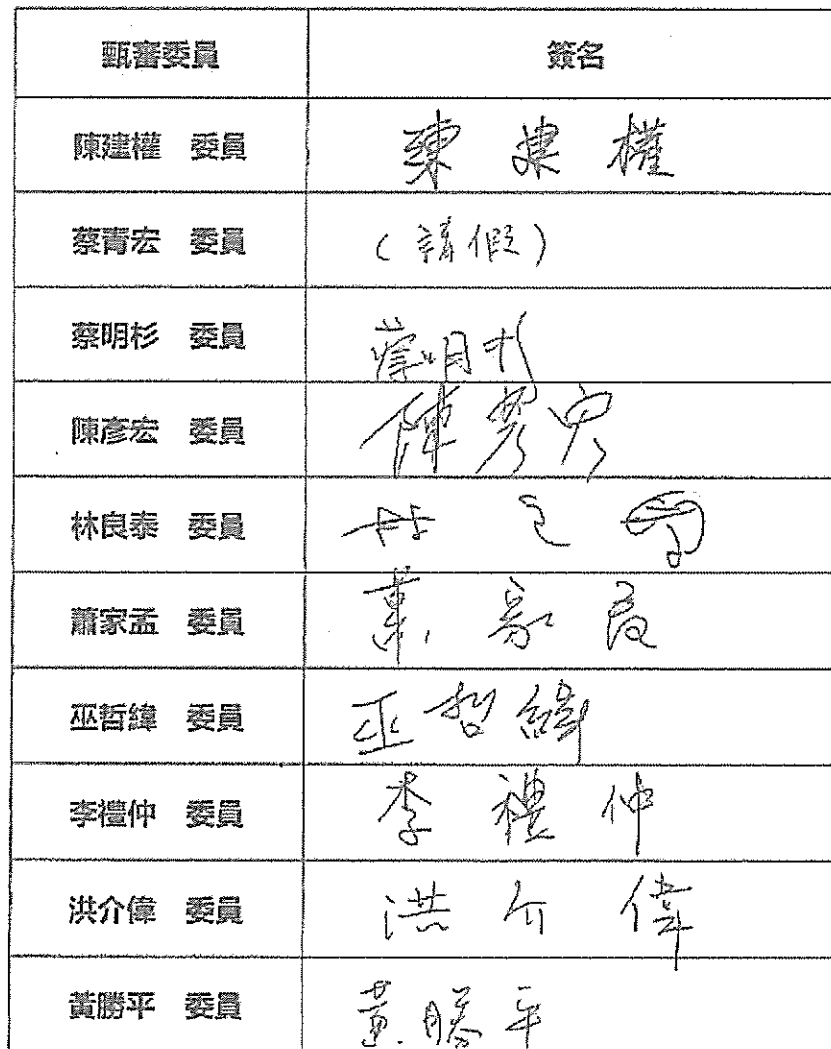 甄審委員 簽名
陳建權 委員 陳建權
蔡青宏 委員 (請假)
蔡明杉 委員 蔡明杉
陳彥宏 委員 陳彥宏
林良泰 委員 林良泰
蕭家孟 委員 蕭家孟
巫哲緯 委員 巫哲緯
李禮仲 委員 李禮仲
洪介偉 委員 洪介偉
黃勝平 委員 黃勝平